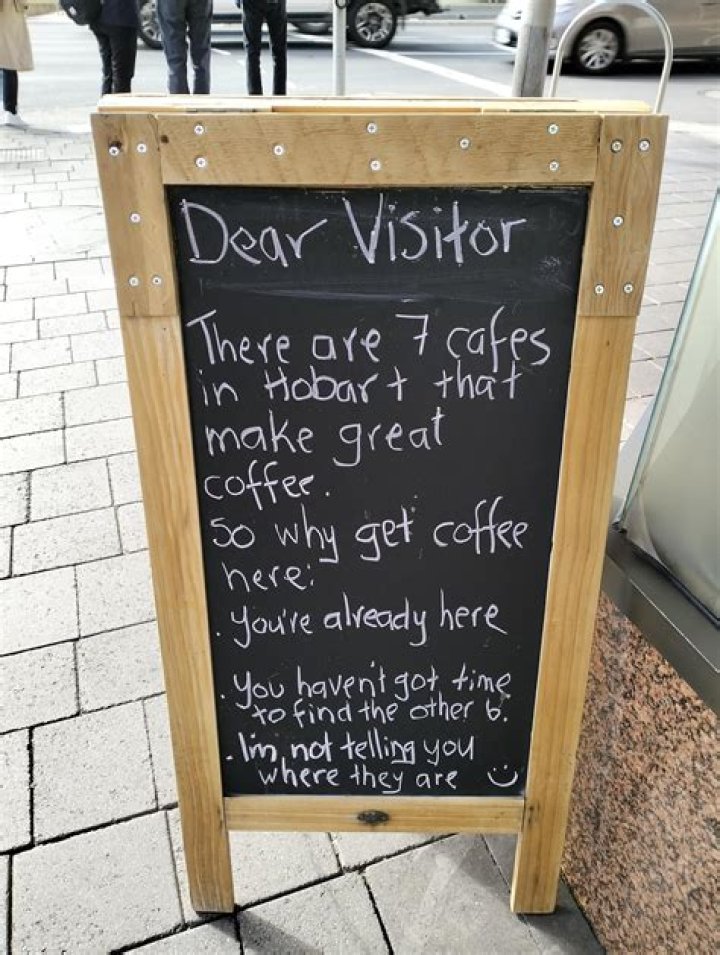 Dear Visitor
There are 7 cafes
in Hobart that
make great
coffee.
So why get coffee
here:
. you're already here
. You haven't got time
to find the other 6.
. I'm not telling you
where they are :)